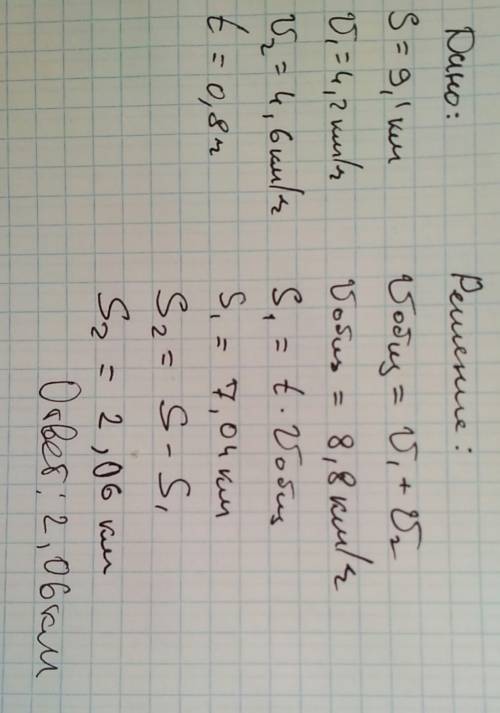 Дано:
S = 9,1 км
V₁ = 4,2 км/ч
V₂ = 4,6 км/ч
t = 0,8 ч
Решение:
Vобщ = V₁ + V₂
Vобщ = 8,8 км/ч
S₁ = t · Vобщ
S₁ = 7,04 км
S₂ = S - S₁
S₂ = 2,06 км
Ответ: 2,06 км